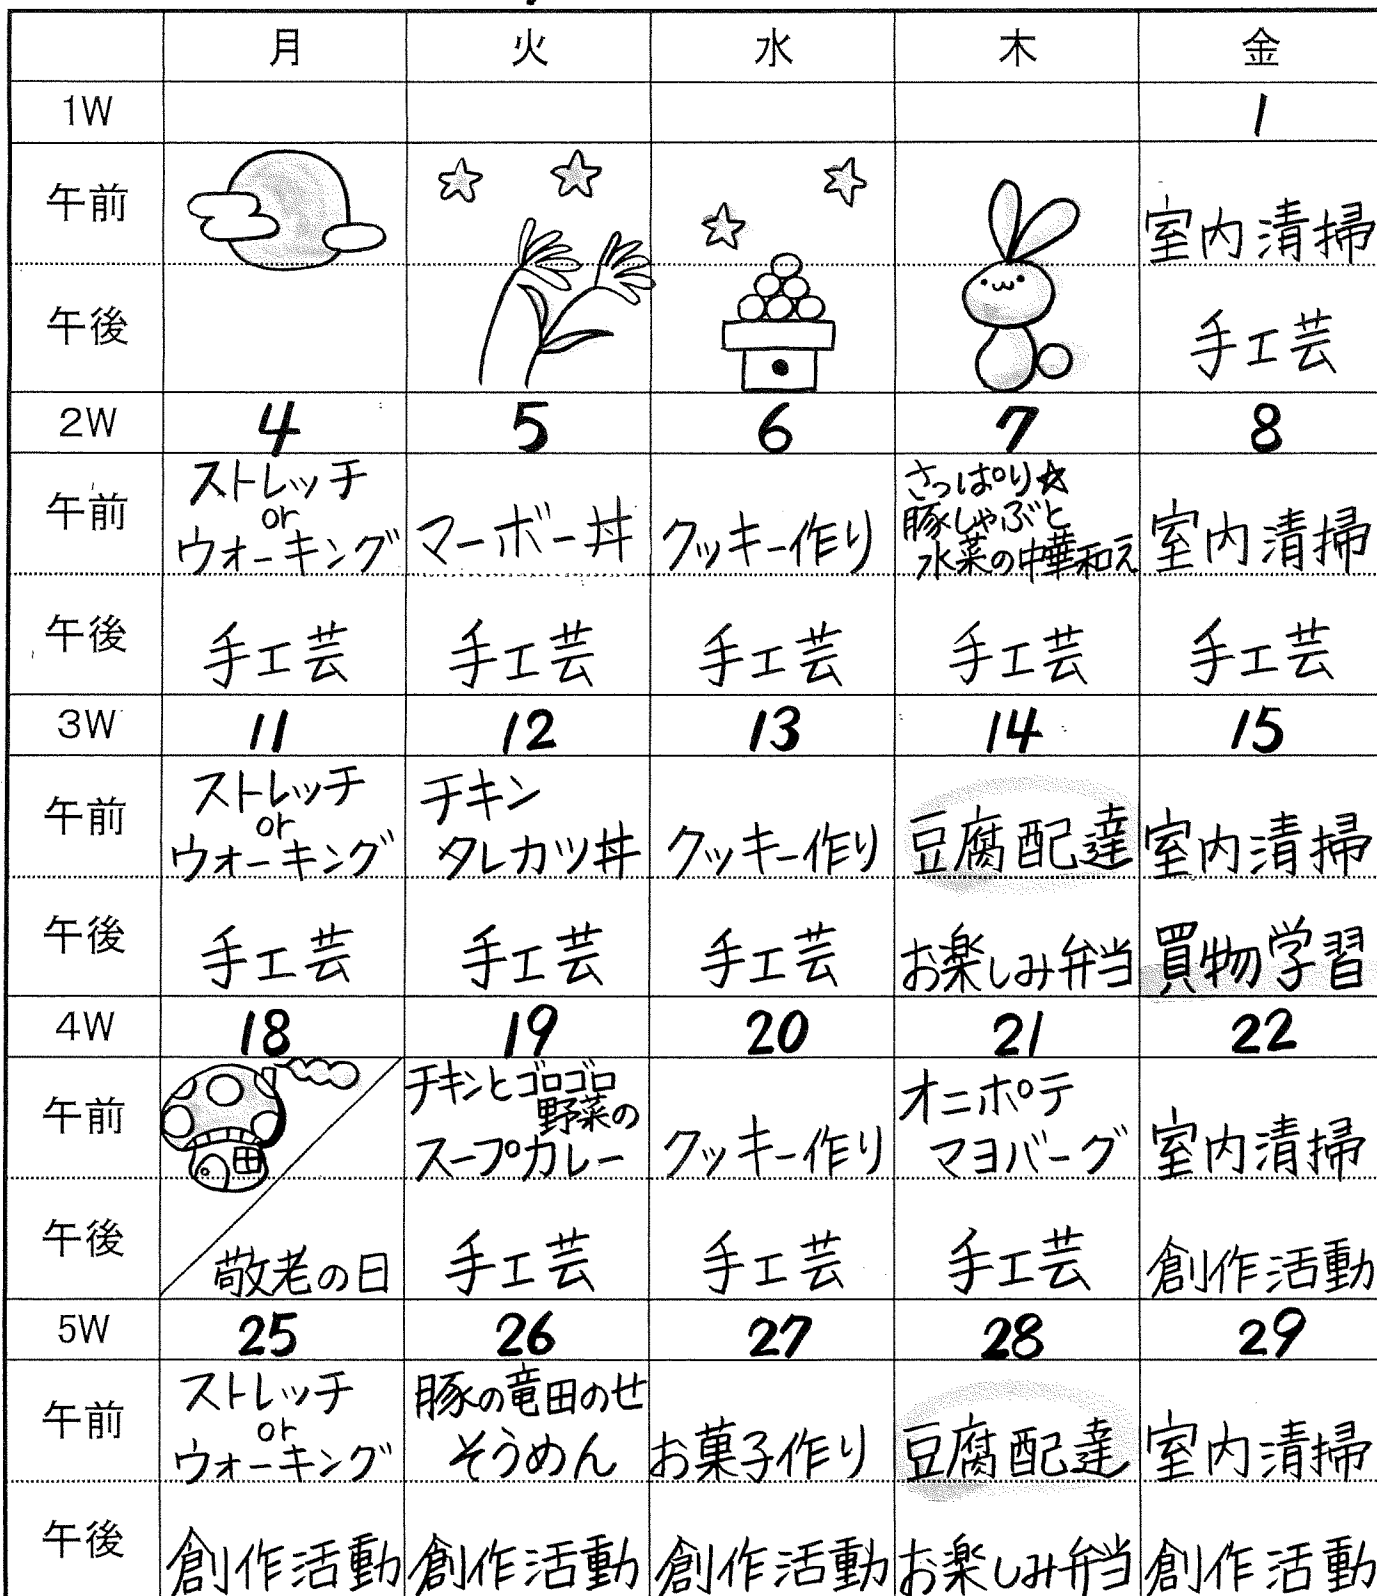 月 火 水 木 金
1W 1
午前 室内清掃
午後 手工芸
2W 4 5 6 7 8
午前
ストレッチ
or
ウォーキング
マーボー丼
クッキー作り
さっぱり☆
豚しゃぶと
水菜の中華和え
室内清掃
午後 手工芸 手工芸 手工芸 手工芸 手工芸
3W 11 12 13 14 15
午前
ストレッチ
or
ウォーキング
チキン
タレカツ丼
クッキー作り
豆腐配達
室内清掃
午後 手工芸 手工芸 手工芸 お楽しみ弁当 買物学習
4W 18 19 20 21 22
午前
チキンとゴロゴロ
野菜の
スープカレー
クッキー作り
オニポテ
マヨバーグ
室内清掃
午後 敬老の日 手工芸 手工芸 手工芸 創作活動
5W 25 26 27 28 29
午前
ストレッチ
or
ウォーキング
豚の竜田のせ
そうめん
お菓子作り
豆腐配達
室内清掃
午後 創作活動 創作活動 創作活動 お楽しみ弁当 創作活動